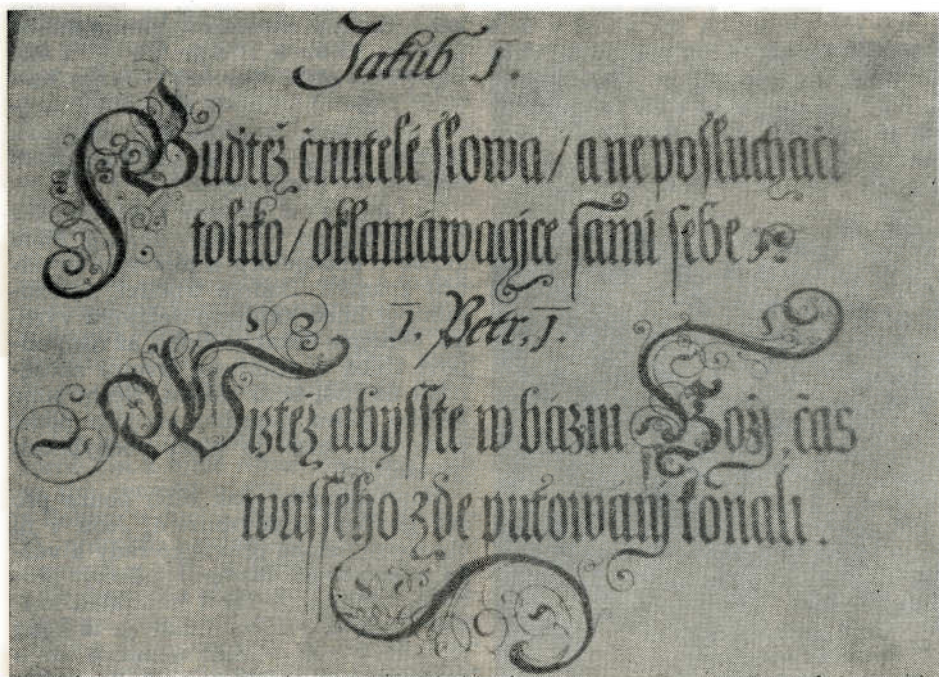 Jakub I.
Budtež činitelé slowa / a ne posluchači
toliko / oklamáwagjce sami sebe
I. Petr. I.
Wiztež abysste w bázni Božj, čas
wasseho zde putowánj konali.